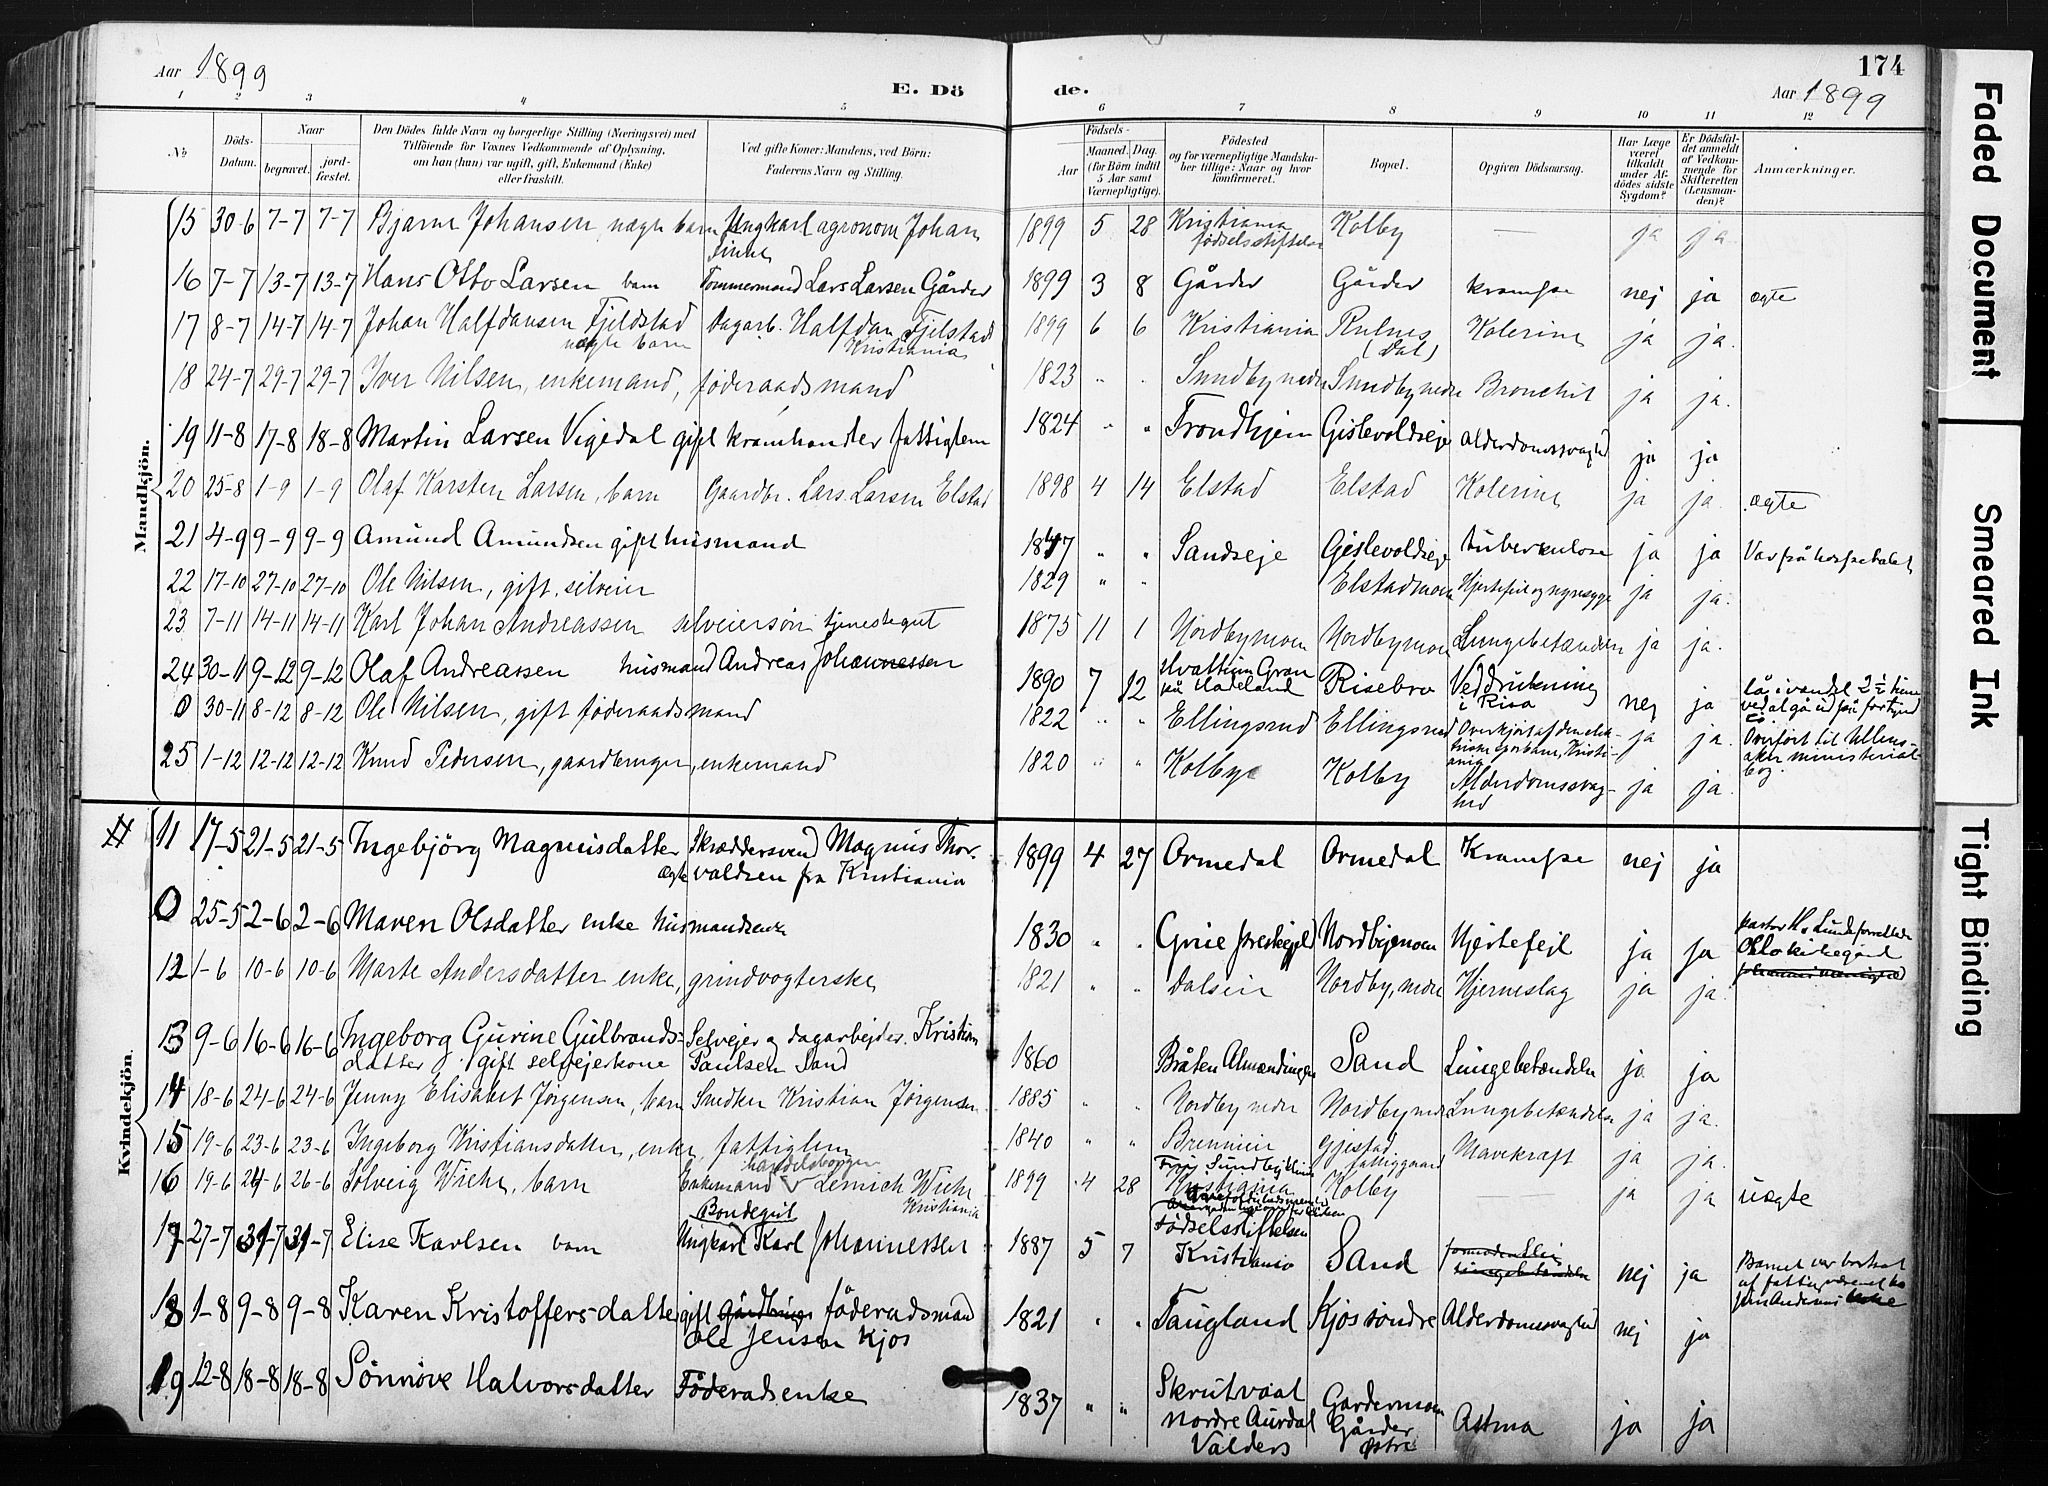 Aar 1899
E. Dö
de.
174
Aar 1899
1 2 3 4 5 6 7 8 9 10 11 12
No
Döds-Datum.
Naar
begravet.
jord-fæstet.
Den Dödes fulde Navn og borgerlige Stilling (Næringsvei) med
Tilföiende for Voxnes Vedkommende af Oplysning,
om han (hun) var ugift, gift, Enkemand (Enke)
eller fraskilt.
Ved gifte Koner: Mandens, ved Börn:
Faderens Navn og Stilling.
Födsels-
Aar
Maaned. Dag.
(for Börn indtil
5 Aar samt
Værnepligtige).
Födested
og for værnepligtige Mandska-
ber tillige: Naar og hvor
konfirmeret.
Bopæl.
Opgiven Dödsaarsag.
Har Læge
været
tilkaldt
under Af-
dödes sidste
Sygdom?
Er Dödsfal-
det anmeldt
af Vedkom-
mende for
Skifteretten
(Lensman-
den)?
Anmærkninger.
Mandkjön.
15 30-6 7-7 7-7 Bjarne Johansen, uægte barn Ungkarl agronom Johan 1899 5 28 Kristiania fødselsstiftelse Kolby — ja ja.
16 7-7 13-7 13-7 Hans Otto Larsen barn Tømmermand Lars Larsen Gårder 1899 3 8 Gårder Gårder krampe nej ja ægte
17 8-7 14-7 14-7 Johan Halfdansen Fjeldstad uægte barn Dagarb. Halfdan Fjelstad Kristiania 1899 6 6 Kristiania (Dal) Kolerine ja ja.
18 24-7 29-7 29-7 Iver Nilsen, enkemand, føderaadsmand 1823 " " Sundby nedre Sundby nedre Bronchit ja ja.
19 11-8 17-8 18-8 Martin Larsen Vigedal gift kramhandler fattiglem 1824 " " Trondhjem Gislevoldseje alderdomssvaghed ja ja
20 25-8 1-9 1-9 Olaf Karsten Larsen, barn Gaardbr. Lars Larsen Elstad 1898 4 14 Elstad Elstad Kolerine ja ja. ægte
21 4-9 9-9 9-9 Amund Amundsen gift husmand 1847 " " Sandseje Gislevoldseje tuberkulose ja ja Var på hospitalet
22 17-10 27-10 27-10 Ole Nilsen, gift, selveier 1829 " " Elstadmoen Hjertefeil og nyresyge ja ja.
23 7-11 14-11 14-11 Karl Johan Andreassen selveiersøn tjenestegut 1875 11 1 Nordbymoen Nordbymoen Lungebetændelse ja ja.
24 30-11 9-12 9-12 Olaf Andreassen husmand Andreas Johannessen 1890 7 12 Hvattum Gran på Hadeland Risebro Ved drukning i Risa nej ja lå i vandet 2½ time ved at gå ud på
0 30-11 8-12 8-12 Ole Nilsen, gift føderaadsmand 1822 " " Ellingsrud Ellingsrud Overkjørt af den elektriske sporbane, Kristiania ja ja. Overført til Ullensaker ministerialbog.
25 1-12 12-12 12-12 Knud Pedersen, gaardbruger, enkemand 1820 " " Kolby Kolby Alderdomssvaghed ja ja.
Kvindekjön.
# 11 17-5 21-5 21-5 Ingebjörg Magnusdatter ægte Skræddersvend Magnus Thorvaldsen fra Kristiania 1899 4 27 Ormedal Ormedal Krampe nej ja
0 25-5 2-6 2-6 Maren Olsdatter enke husmandsenke 1830 " " Grue prestegjeld Nordbymoen Hjertefejl ja ja pastor H. Lunde forrettede Oslo kirkegård
12 1-6 10-6 10-6 Marte Andersdatter enke, grindvogterske 1821 " " Dalseie Nordby, nedre Hjerneslag ja ja.
13 9-6 16-6 16-6 Ingeborg Gurine Gulbrandsdatter gift selvejerkone Selvejer og dagarbejder Kristian Paulsen Sand 1860 Bråten Almendingen Sand Lungebetændelse ja ja
14 18-6 24-6 24-6 Jenny Elisabet Jørgensen, barn Snedker Kristian Jørgensen 1885 " " Nordby nedre Nordby nedre Lungebetændelse ja ja.
15 19-6 23-6 23-6 Ingeborg Kristiansdatter, enke, fattiglem 1840 " " Brenneie Gjestad fattiggaard Mavekraft ja ja.
16 19-6 24-6 26-6 Solveig Wiehe, barn Enkemand handelsborger Lemich Wiehe Kristiania 1899 4 28 Fru Sundbyklinik Kristiania Kolby — ja ja uægte
17 27-7 31-7 31-7 Elise Karlsen barn Bondegut Ungkarl Karl Johannessen 1887 5 7 Födselsstiftelsen Kristiania Sand nej ja Barnet var bortsat af fattigvæsenet
18 1-8 9-8 9-8 Karen Kristoffersdatter gift föderadsmand Ole Jensen Kjos 1821 " " Taugland Kjos söndre Alderdomssvaghed nej ja
19 12-8 18-8 18-8 Sönnöve Halvorsdatter Föderadsenke 1837 " " Skrutvaal Nordre Aurdal Valders Gardermoen Gårder østre Astma ja ja
Faded Document
Smeared Ink
Tight Binding